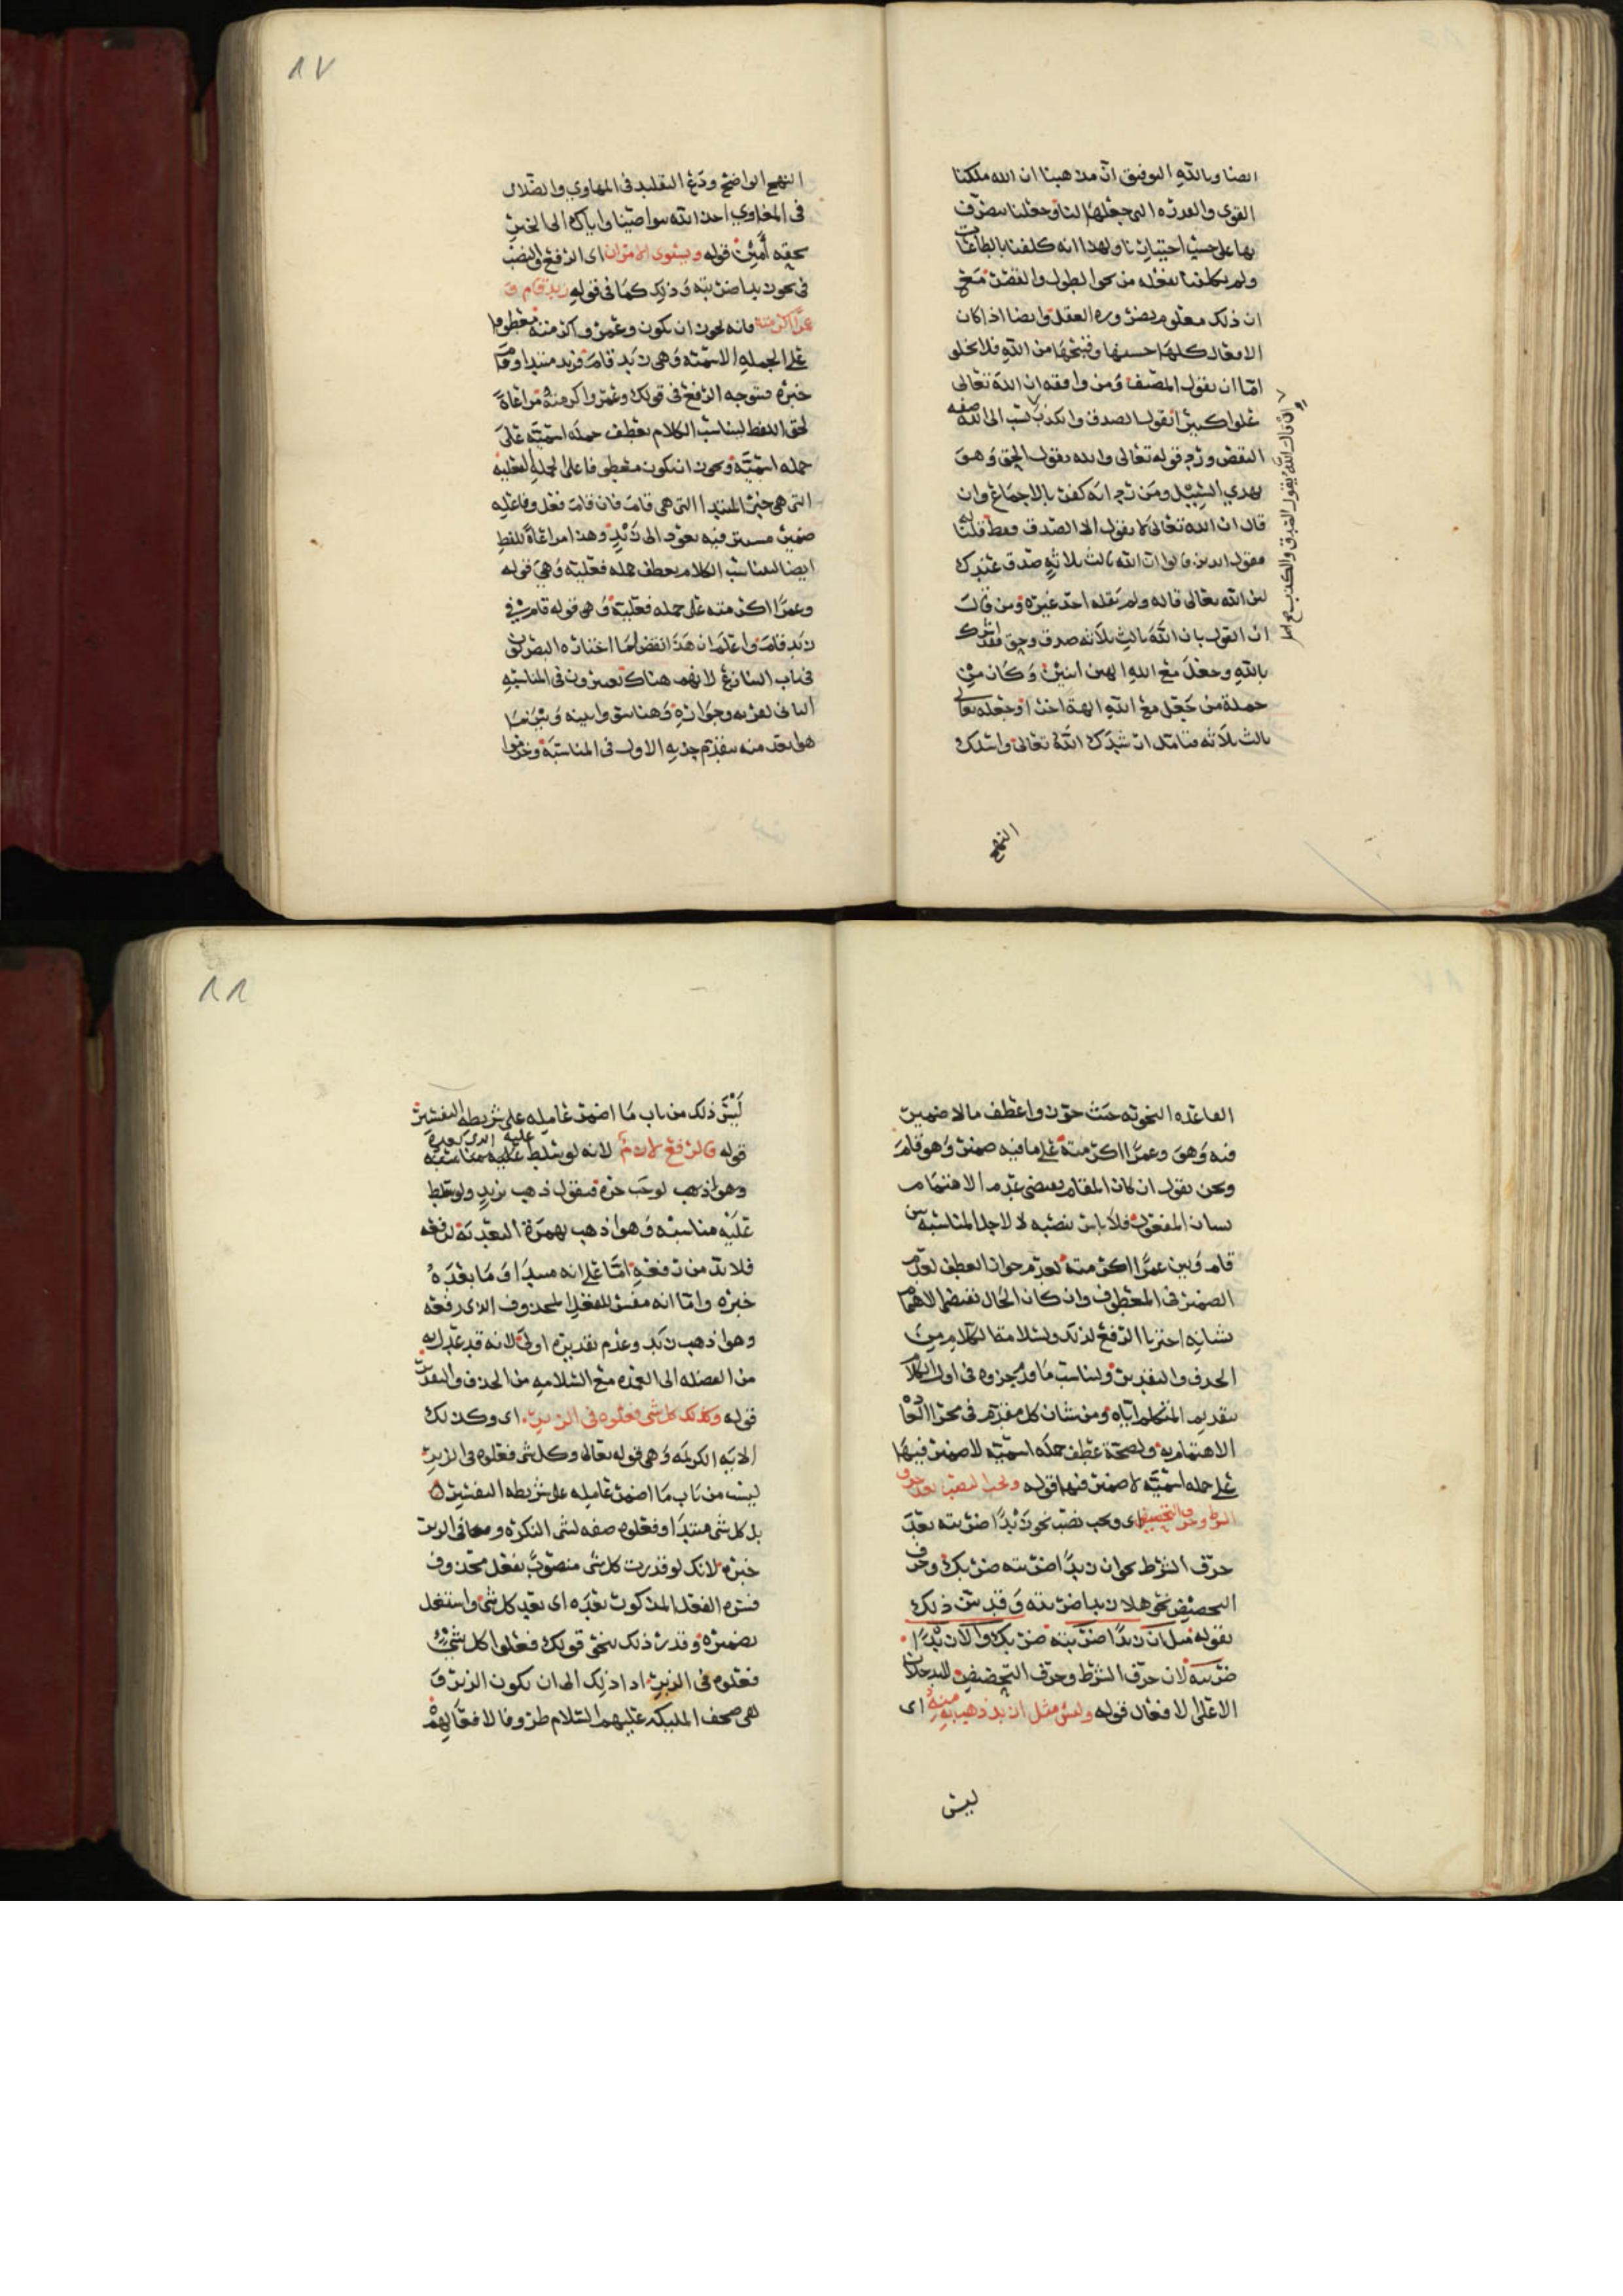 ايضا وبالله التوفيق ان مذهبنا ان الله ملكنا
القوى والقدره التي جعلها لنا وجعلنا نتصرف
بها على حسب اختيارنا ولهذا انه كلفنا بالطاعات
ولم يكلفنا بفعله من نحو الطول والقصر مع
ان ذلك معلوم بضروره العقل وايضا اذا كان
الافعال كلها حسنها وقبيحها من الله فلا يخلو
اما ان يقول المصنف ومن وافقه ان الله تعالى
علوا كبيرا يقول الصدق والكذب نسب الى الله صفه
النقص ورد قوله تعالى والله يقول الحق وهو
يهدي السبيل ومن رد انه كفر بالاجماع وان
قال ان الله تعالى لا يقول الا الصدق فقط قلنا له
فقول الذين قالوا ان الله ثالث ثلاثه صدق عندك
لان الله تعالى قاله ولم يقله احد غيره ومن قال
ان القول بان الله ثالث ثلاثه صدق وحق فقد اشرك
بالله وجعل مع الله الهين اثنين وكان من
جملة من جعل مع الله الهة اخرى وجعله تعالى
ثالث ثلاثه فتامل ارشدك الله تعالى واسلك
ان قال الله يقول الصدق والكذب صح اصل
النهج
٨٧
النهج الواضح ودع التقليد في المهاوي والضلال
في المغاوي اخذ الله بنواصينا واياك الى الخير
بحقه آمين قوله ويستوى الامران اى الرفع والنصب
في نحو زيدا ضربته وذلك كما في قوله زيد قام و
عمرا اكرمته فانه يجوز ان يكون وعمرو اكرمته معطوفا
على الجمله الاسمية وهي زيد قام فزيد مبتدا وقام
خبره فتوجه الرفع في قولك وعمرو اكرمته مراعاة
لحق اللفظ ليناسب الكلام بعطف جملة اسمية على
جمله اسمية ويجوز ان يكون معطوفا على الجملة الفعلية
التي هي خبر المبتدا التي هي قام فان قام فعل وفاعله
ضمير مستتر فيه يعود الى زيد وهذا مراعاة للفظ
ايضا ليناسب الكلام بعطف جمله فعلية وهي قوله
وعمرا اكرمته على جمله فعلية وهي قوله قام في
زيد قام واعلم ان هذا نقض لما اختاره البصريون
في باب التنازع لانهم هناك يعتبرون في المناسبه
الثاني لقربه وجواره وهنا سق وابينه وبين ما
هو ابعد منه بتقديم جذبه الاول في المناسبة وخرموا
القاعده النحوية حيث جوزوا عطف مالا ضمير
فيه وهو وعمرا اكرمته على ما فيه ضمير وهو قام
ونحن نقول ان كان المقام يقتضي عدم الاهتمام
بشان المفعول فلا باس بنصبه لا لاجل المناسبة بين
قام وبين عمرا اكرمته لعدم جواز العطف لعدم
الضمير في المعطوف وان كان الحال يقتضي الاهتمام
بشانه اخترنا الرفع لذلك ولسلامة الكلام من
الحذف والتقدير وليناسب ما قد حرروه في اول الكلام
بتقديم المتكلم اياه ومن شان كل مقدم في مجرا العا
الاهتمام به ولصحة عطف جملة اسمية لا ضمير فيها
على جمله اسمية لا ضمير فيها قوله ويجب النصب بعد حرف
الشرط وحرف التحضيض اى ويجب نصب نحو زيدا ضربته بعد
حرف الشرط نحو ان زيدا ضربته ضربك وحرف
التحضيض نحو هلا زيدا ضربته وقد بين ذلك
بقوله مثل ان زيدا ضربته ضربك والا زيدا
ضربته لان حرف الشرط وحرف التحضيض لا يدخلان
الا على الافعال قوله وليس مثل ازيد ذهب به منه اى
ليس
٨٨
ليس ذلك من باب ما اضمر عامله على شريطه التفسير
قوله فالرفع لازم لانه لو سلط عليه الذي بعده
وهو ذهب لوجب جره فتقول ذهب بزيد ولو سلط
عليه مناسبه وهو اذهب بهمزة التعدية لرفعه
فلا بد من رفعه اما على انه مبتدا وما بعده
خبره واما انه مفسر للفعل المحذوف الذى رفعه
وهو اذهب زيد وعدم تقديره اولى لانه قد عدل به
من الفضله الى العمده مع السلامه من الحذف والتقدير
قوله وكذلك كل شى فعلوه في الزبر اى وكذلك
الايه الكريمه وهي قوله تعالى وكل شى فعلوه في الزبر
ليست من باب ما اضمر عامله على شريطه التفسير
بل كل شى مبتدا وفعلوه صفه لشى النكره ومعا في الزبر
خبره لانك لو قدرت كل شى منصوب بفعل محذوف
فسره الفعل المذكور بعده اى بعد كل شى واشتغل
بضميره وقدر ذلك بنحو قولك فعلوا كل شى
فعلوه في الزبر ادا ذلك الى ان يكون الزبر و
هي صحف المليكه عليهم السلام ظروفا لافعالهم